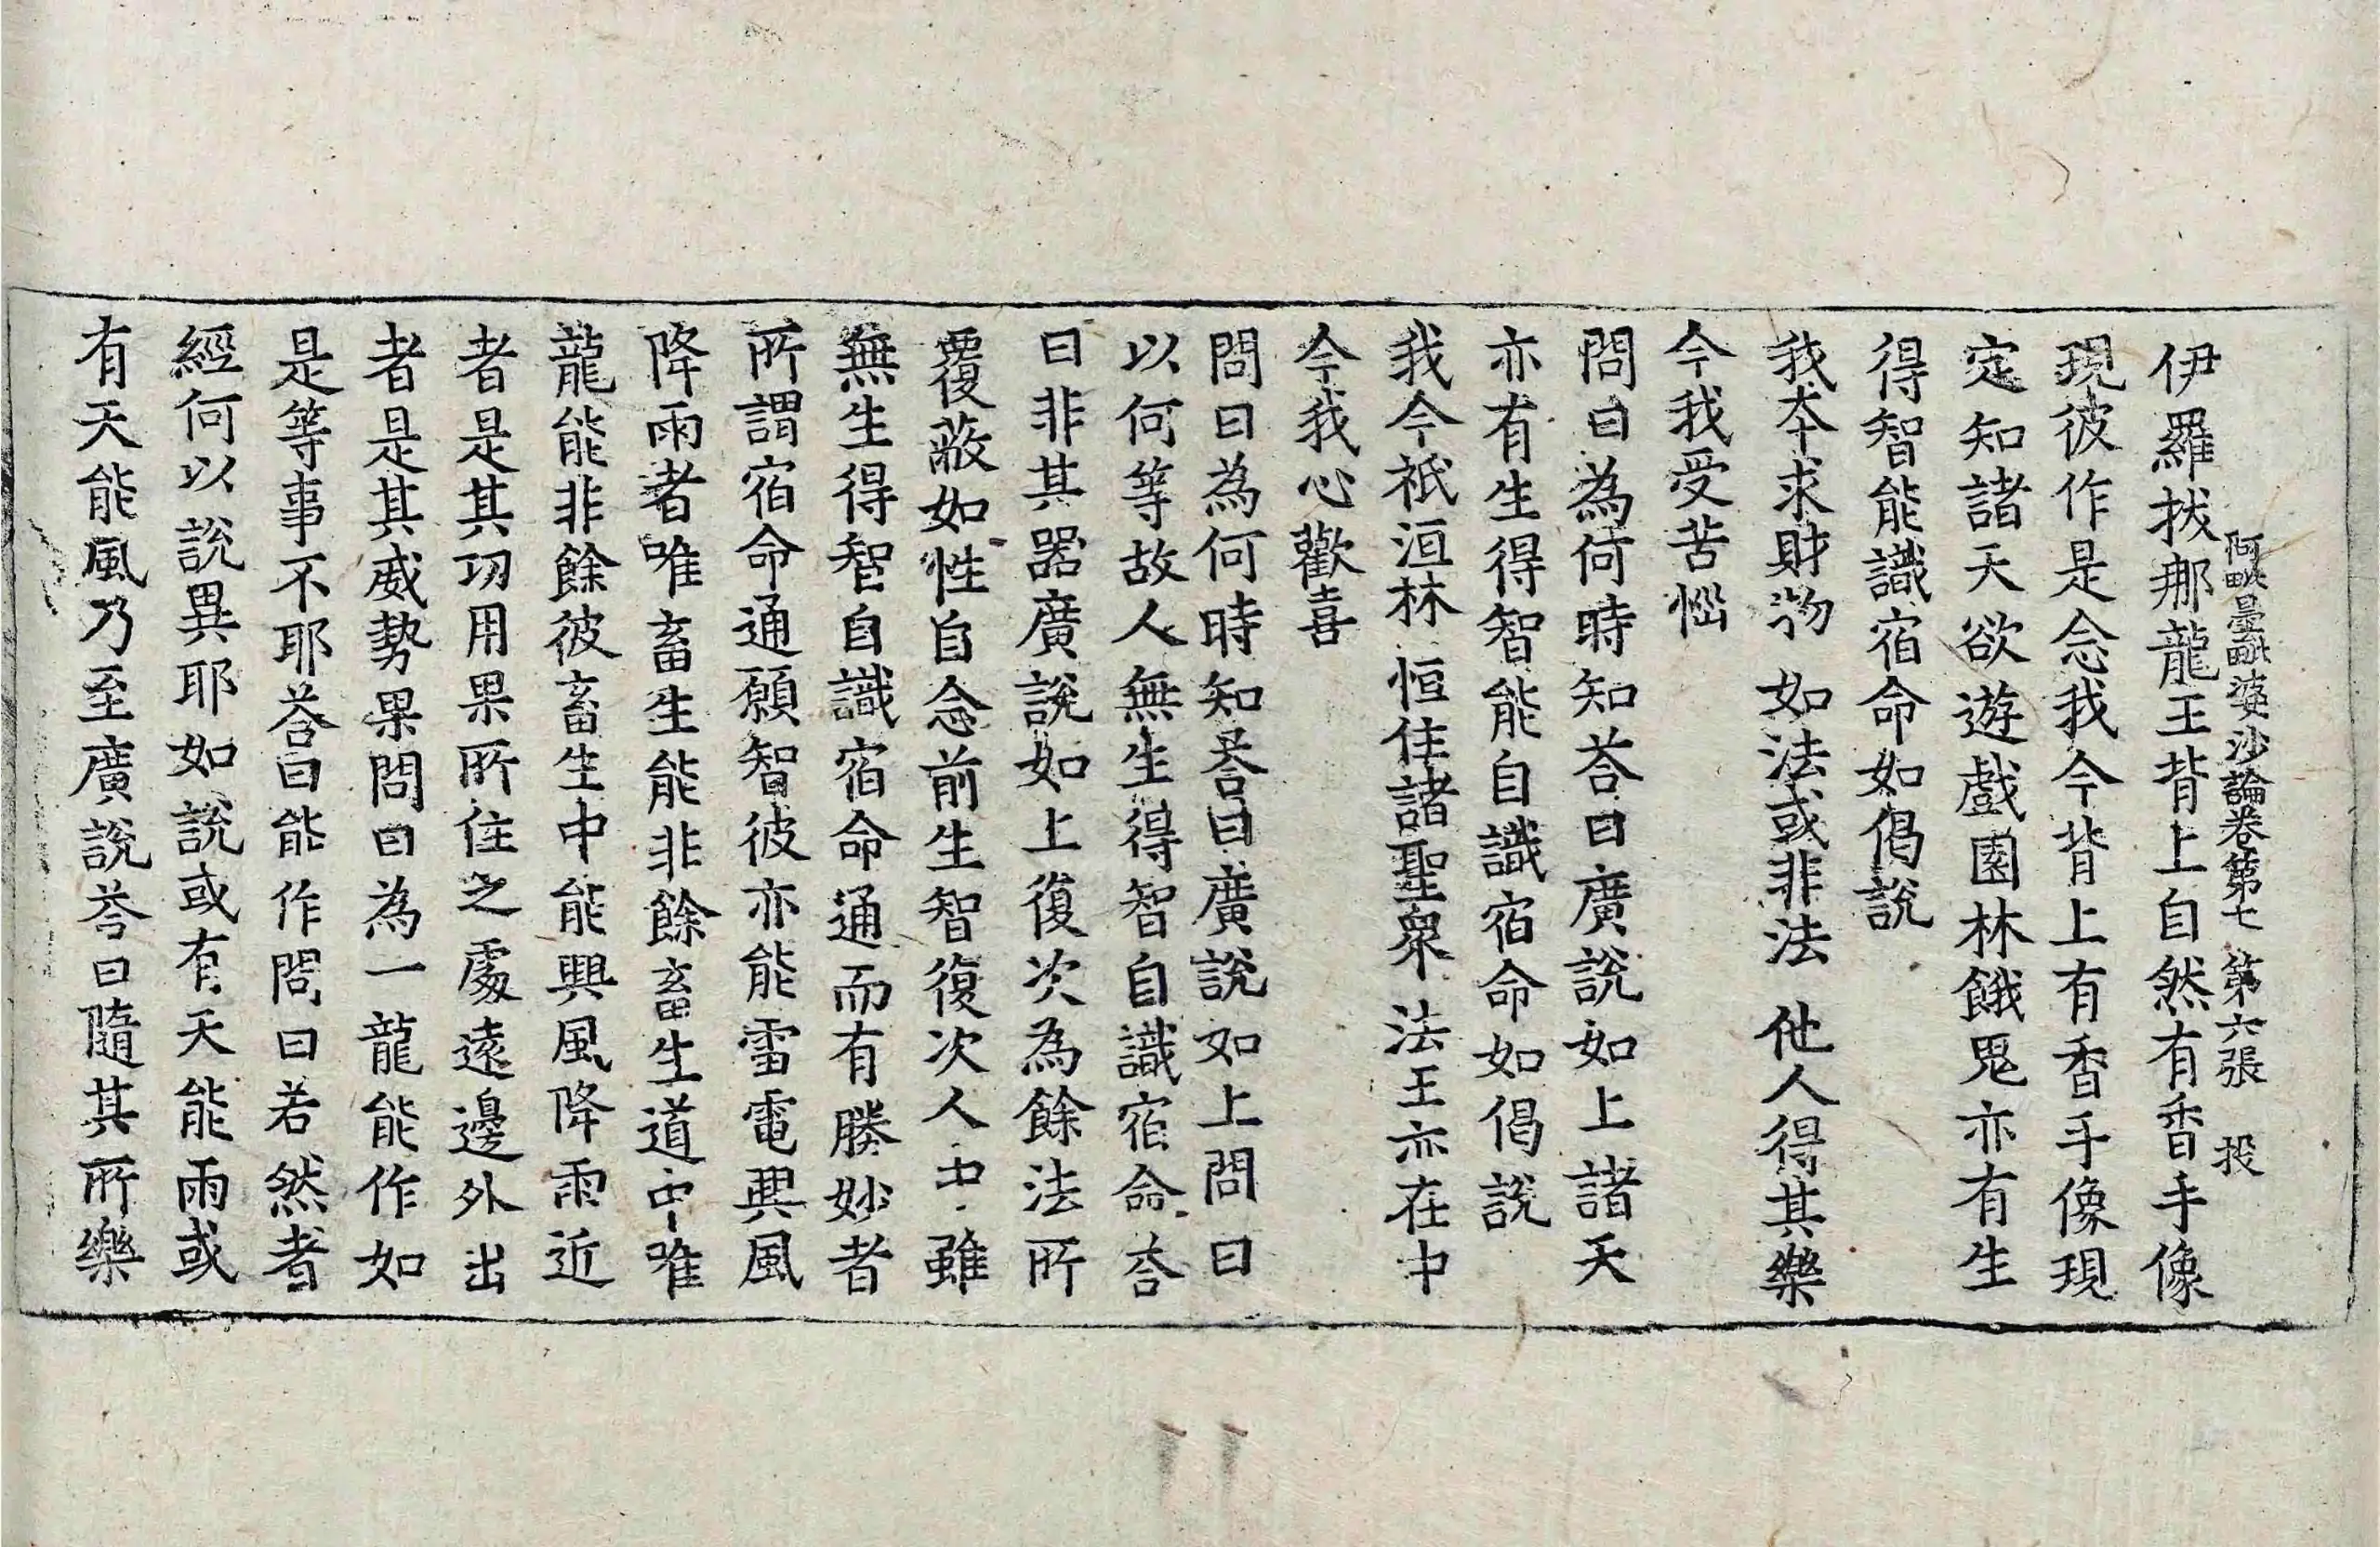 阿毗曇毗婆沙論卷第七　第六張　投
伊羅拔那龍王背上自然有香手像
現彼作是念我今背上有香手像現
定知諸天欲遊戲園林餓鬼亦有生
得智能識宿命如偈說
我本求財物　如法或非法　他人得其樂
今我受苦惱
問曰為何時知荅曰廣說如上諸天
亦有生得智能自識宿命如偈說
我今祇洹林　恒住諸聖衆　法王亦在中
今我心歡喜
問曰為何時知荅曰廣說如上問曰
以何等故人無生得智自識宿命荅
曰非其器廣說如上復次為餘法所
覆蔽如性自念前生智復次人中雖
無生得智自識宿命通而有勝妙者
所謂宿命通願智彼亦能雷電興風
降雨者唯畜生能非餘畜生道中唯
龍能非餘彼畜生中能興風降雨近
者是其功用果所住之處遠邊外出
者是其威勢果問曰為一龍能作如
是等事不耶荅曰能作問曰若然者
經何以說異耶如說或有天能雨或
有天能風乃至廣說荅曰隨其所樂